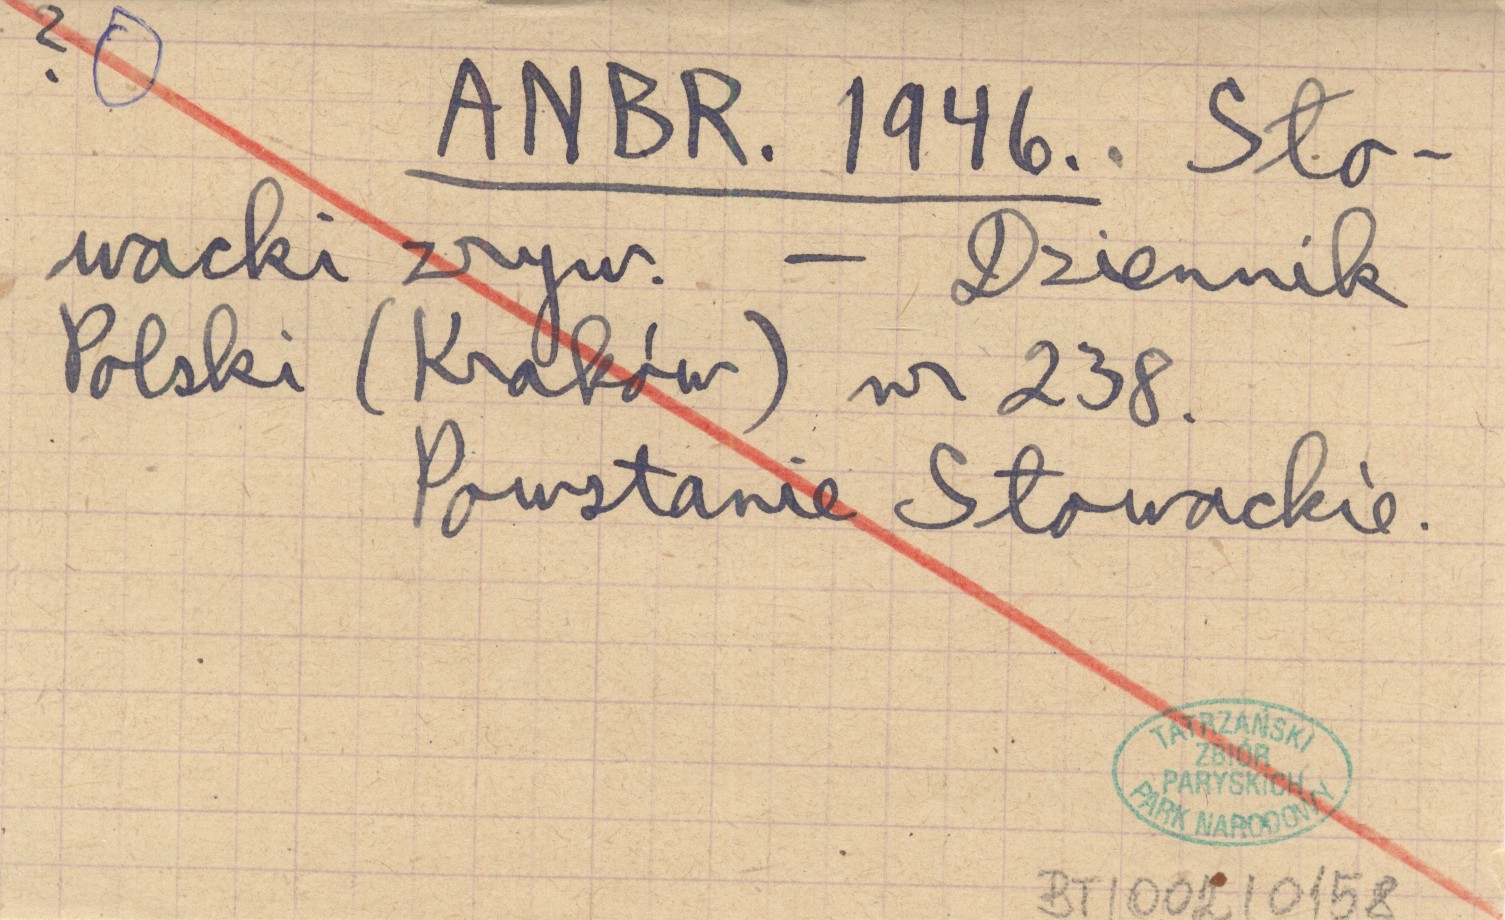 ?
ANBR. 1946. . Sło-
wacki zryw. — Dziennik
Polski (Kraków) nr 238.
Powstanie Słowackie.
TATRZAŃSKI
ZBIÓR
PARYSKICH
PARK NARODOWY
BT/002/0158